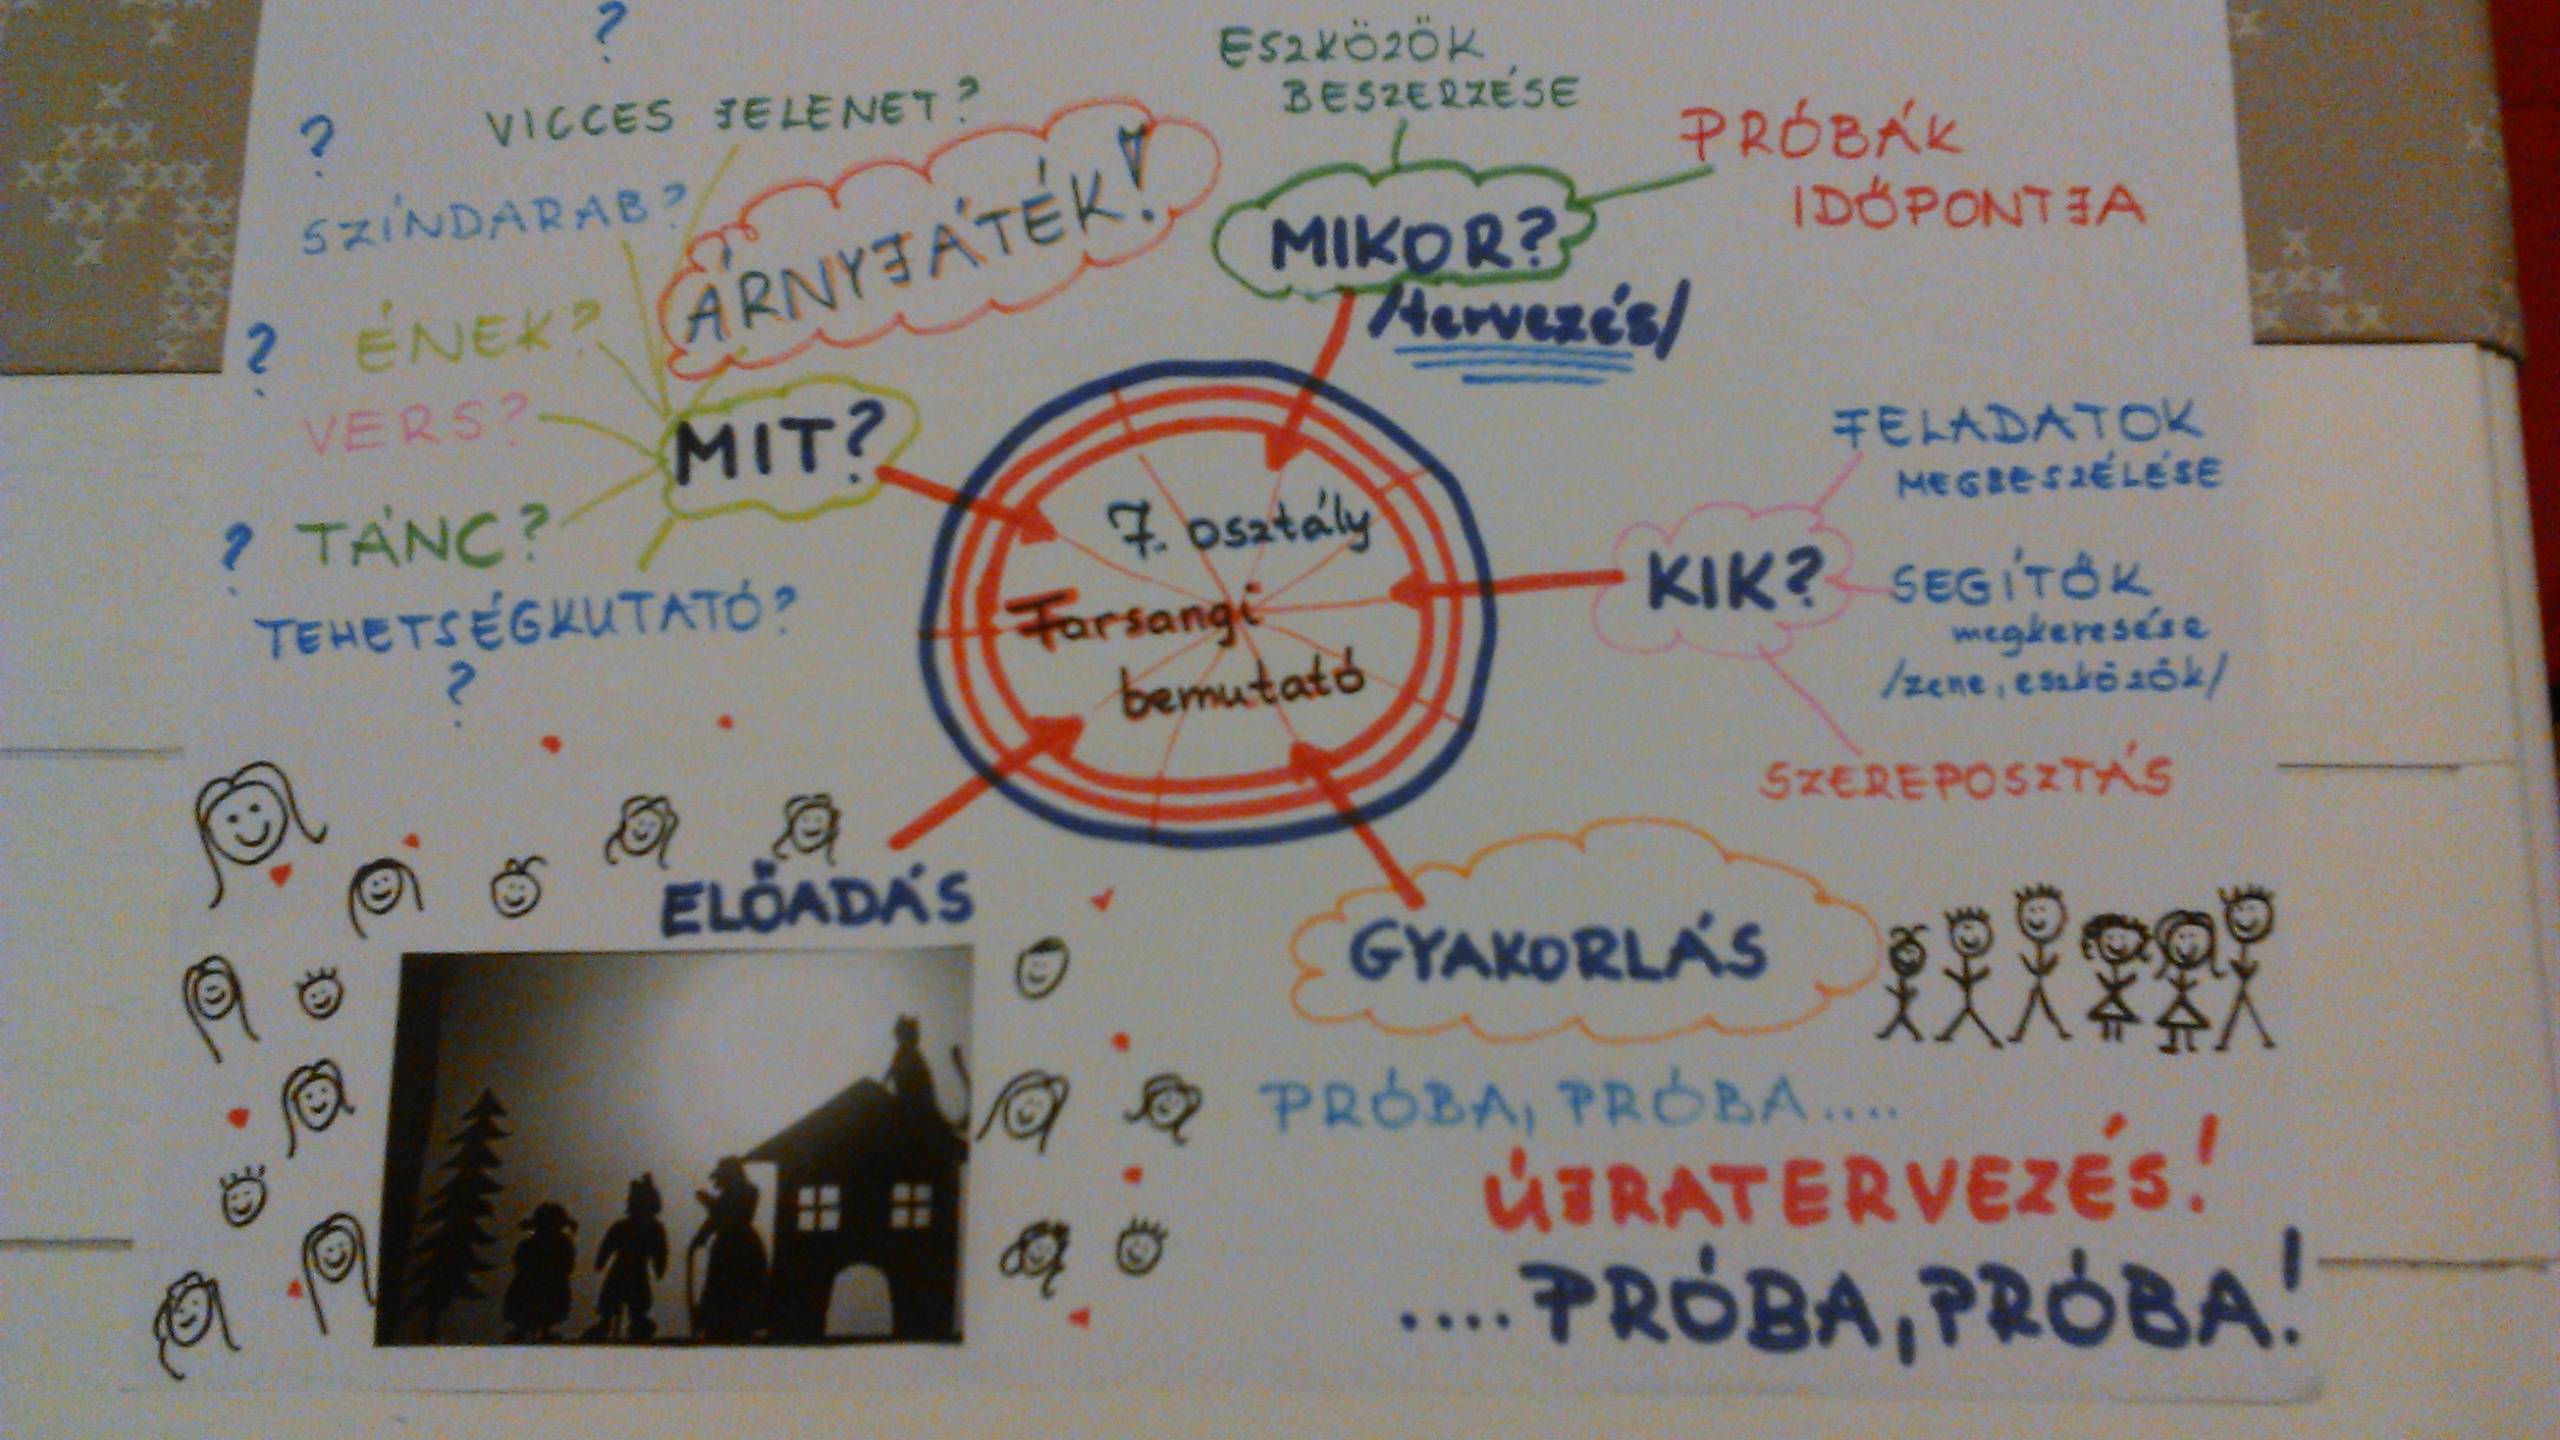 ?
VICCES JELENET?
?
SZÍNDARAB?
ÁRNYJÁTÉK!
?
ÉNEK?
VERS?
MIT?
?
TÁNC?
TEHETSÉGKUTATÓ?
?
ESZKÖZÖK
BESZERZÉSE
PRÓBÁK
IDŐPONTJA
MIKOR?
/tervezés/
7. osztály
Farsangi
bemutató
FELADATOK
MEGBESZÉLÉSE
KIK?
SEGÍTŐK
megkeresése
/zene, eszközök/
SZEREPOSZTÁS
ELŐADÁS
GYAKORLÁS
PRÓBA, PRÓBA....
ÚJRATERVEZÉS!
....PRÓBA, PRÓBA!